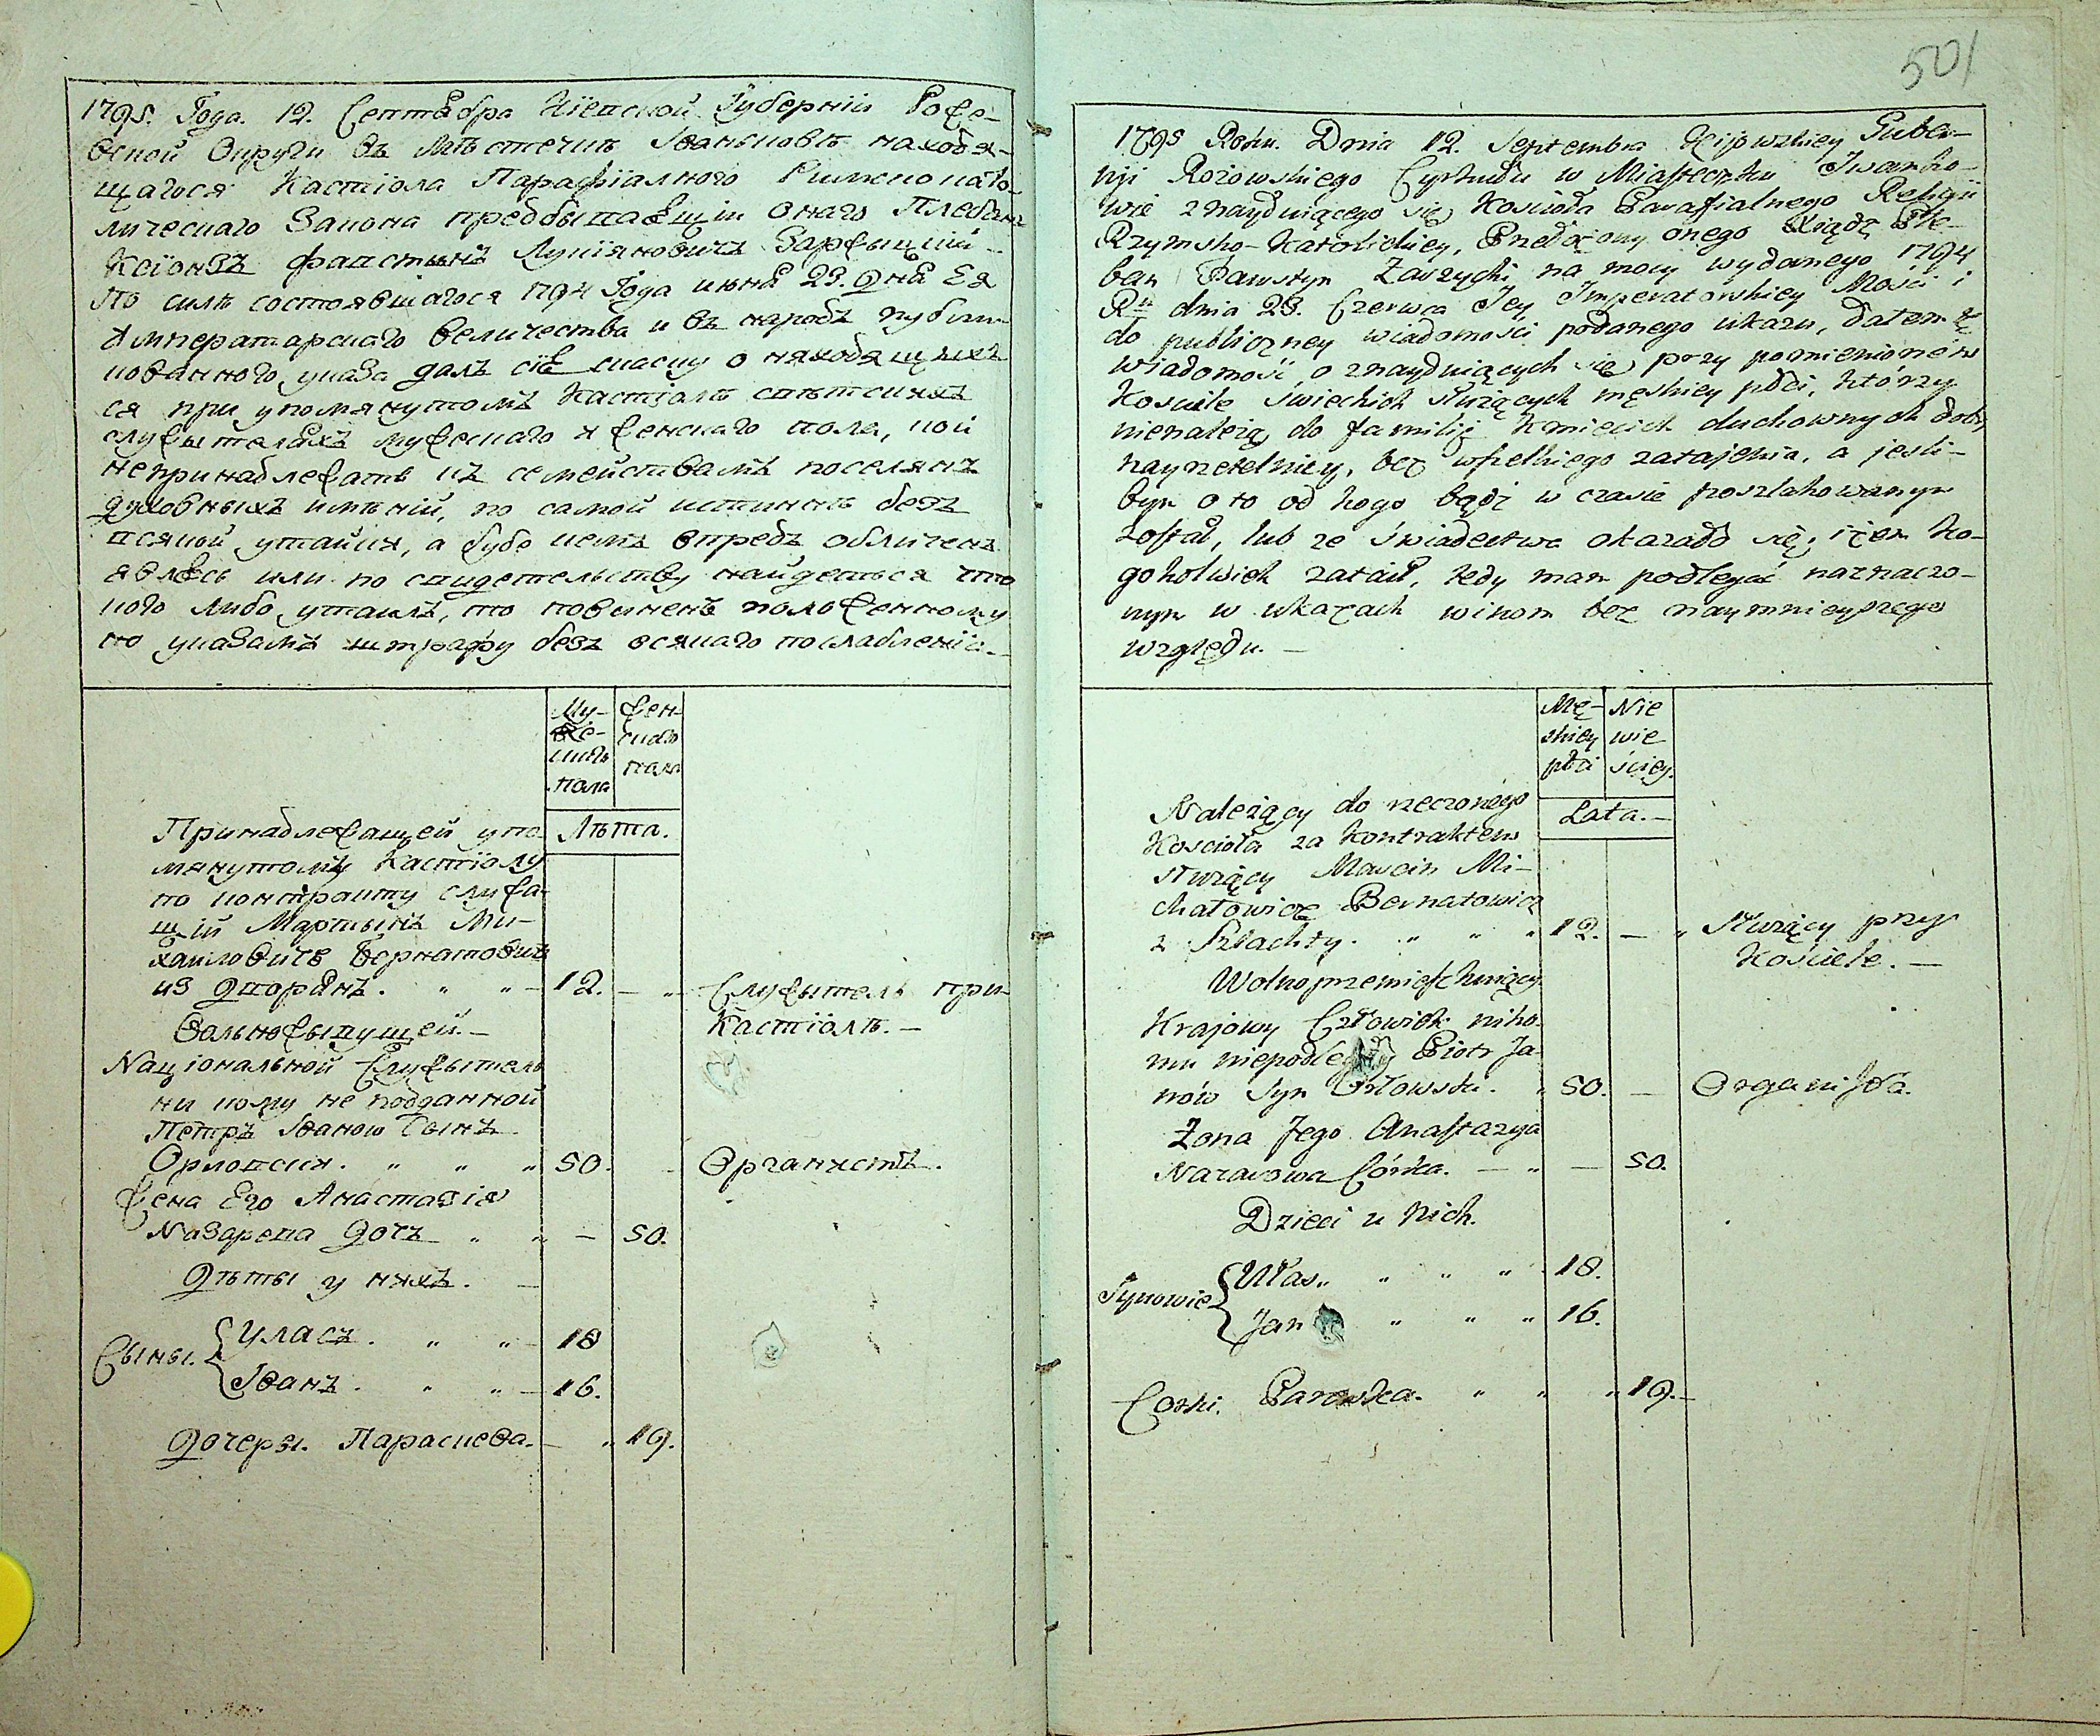 1795. Года. 12. Септѣбра Кіевской Губерніи Рожe-
вской Округи въ мѣстечкѣ Іваньковѣ находя-
щагося Кастіола Парафіалного Римскокато-
лическаго Закона предбываѣщіи онаго Плебанъ
Ксіонзъ Фавстынъ Лукіяновичъ Заржыцкій
По силѣ состоявшагося 1794 Года июня 23. дня Ея
Императарскаго Величества и въ народъ публи-
кованного указа далъ сіе скаску о находящихъ
ся при упомянутомъ Кастіолѣ свѣтскихъ
служытеляхъ мужескаго и женскаго пола, кои
непринадлежатъ къ семействамъ поселянъ
духовныхъ имѣній, по самой истиннѣ безъ
всякой утайки, а буде кемъ впредъ обличенъ
явлюсь или по свидетельству найдеться что
кого либо утаилъ, то повиненъ положенному
по указамъ штрафу безъ всякаго послабленія.
Му-
же-
скаго
пола
жен-
скаго
пола
Лѣта.
Принадлежащей упо
мянутому Кастіолу
по контракту служа-
щій Мартынъ Ми-
хайловичъ Бернатовичъ
из дворянъ. " " - 12. - " - Служытель при
Кастіолѣ. -
Вольножывущей. -
Націоналъной Служытель
ни кому не подданной
Петръ Іванов Сынъ
Орловскій. " " " 50. - Органистъ.
Жена Его Анастазія
Назарева дочъ " " - 50.
Дѣты у нихъ. -
Сыны. { Уласъ. " " - 18
Іванъ. " " - 16.
Дочеры. Параскева. - " 19.
501
1795 Roku. Dnia 12. Septembra Kijowskiey Guber-
nji Rożowskiego Cyrkułu w Miasteczku Iwanko-
wie znayduiącego się Kościoła Parafialnego Religii
Rzymsko-Katolickiey, Przełożony onego Xiądz Ple-
ban Fawstyn Zarzycki na mocy wydanego 1794
Ru dnia 23. Czerwca Jey Imperatorskiey Mości i
do publiczney wiadomości podanego ukazu, datem tę
wiadomość o znayduiących się przy pomienionem
Kościele świeckich służących męskiey płci, którzy
nienależą do familij Kmiecich duchownych dobr,
nayrzetelniey, bez wszelkiego zatajenia, a jesli-
bym o to od kogo bądź w czasie poszlakowanym
został, lub ze świadectwa okazało się, iżem ko-
gokolwiek zataił, tedy mam podlegać naznaczo-
nym w ukazach winom bez naymnieyszego
względu. -
Mę-
skiey
płci
Nie
wie
ściey.
Lata. -
Należący do rzeczonego
Kościoła za kontraktem
służący Marcin Mi-
chałowicz Bernatowicz
z Szlachty. " " " 12. - " Służący przy
Kościele. -
Wolnopremieszkuiący
Krajowy Człowiek niko-
mu niepodległy Piotr Ja-
nów Syn Orłowski. " 50. - Organista.
Żona Jego Anastazya
Nazarowa Córka. - " - 50.
Dzieci u Nich.
Synowie { Ułas. " " " 18.
Jan " " " 16.
Corki. Paraska. " " " 19. -